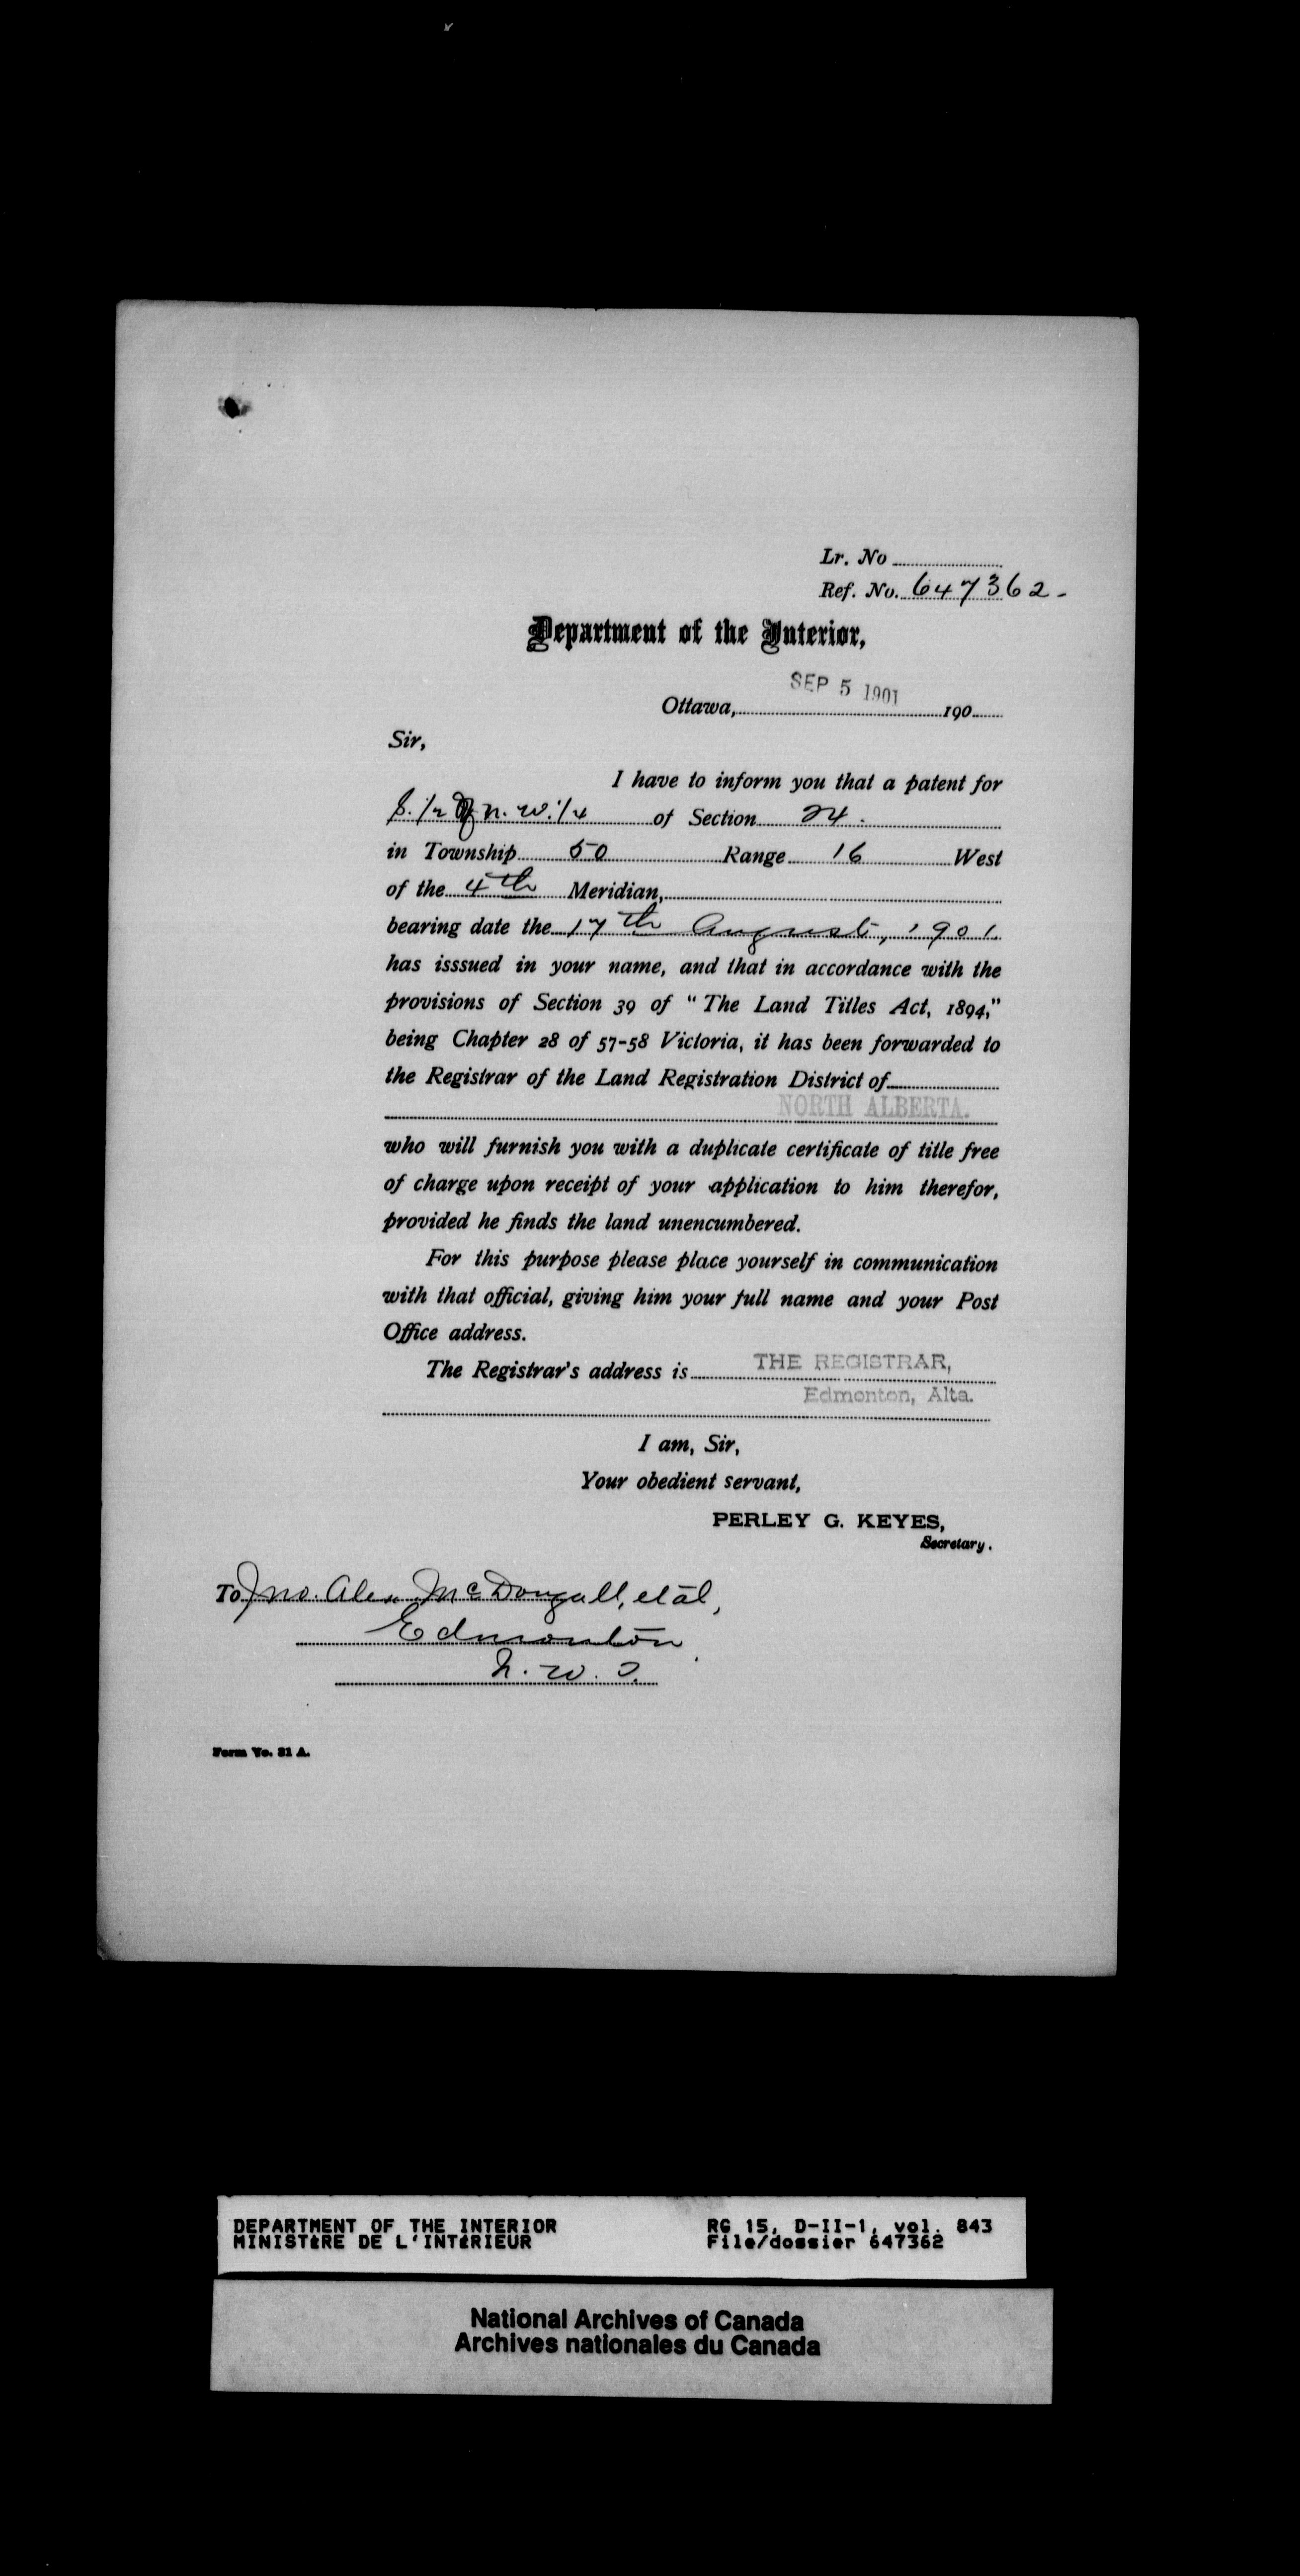 Lr. No
Ref. No. 647362-
Department of the Interior,
SEP 5 1901
Ottawa, 190
Sir,
I have to inform you that a patent for
S. 1/2 of N. W. 1/4 of Section 24.
in Township 50 Range 16 West
of the 4th Meridian,
bearing date the 17th August, 1901
has isssued in your name, and that in accordance with the
provisions of Section 39 of "The Land Titles Act, 1894,"
being Chapter 28 of 57-58 Victoria, it has been forwarded to
the Registrar of the Land Registration District of
NORTH ALBERTA.
who will furnish you with a duplicate certificate of title free
of charge upon receipt of your application to him therefor,
provided he finds the land unencumbered.
For this purpose please place yourself in communication
with that official, giving him your full name and your Post
Office address.
The Registrar's address is THE REGISTRAR,
Edmonton, Alta.
I am, Sir,
Your obedient servant,
PERLEY G. KEYES,
Secretary.
To Jno. Alex. McDougall, et al,
Edmonton
N. W. T.
Form No. 31 A.
DEPARTMENT OF THE INTERIOR RG 15, D-II-1, vol. 843
MINISTÈRE DE L'INTÉRIEUR File/dossier 647362
National Archives of Canada
Archives nationales du Canada